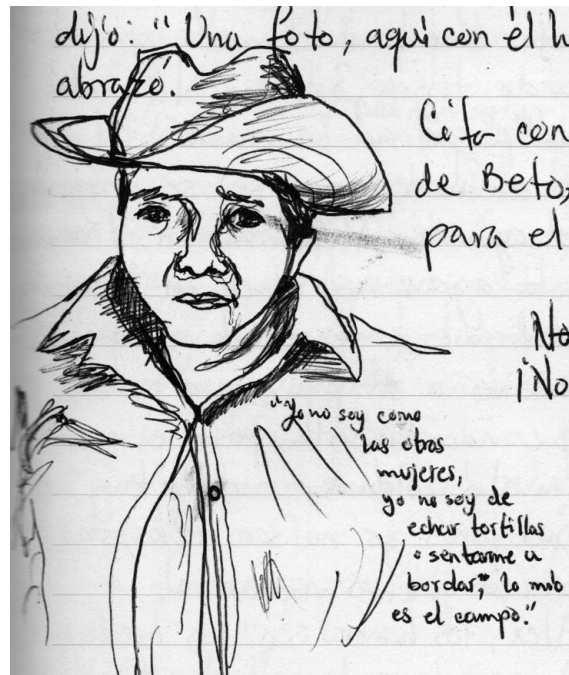 dijo: "Una foto, aquí con él h
abrazó.
Cita con
de Beto,
para el
No
¡No
"Yo no soy como
las otras
mujeres,
yo no soy de
echar tortillas
o sentarme a
bordar," lo mío
es el campo."